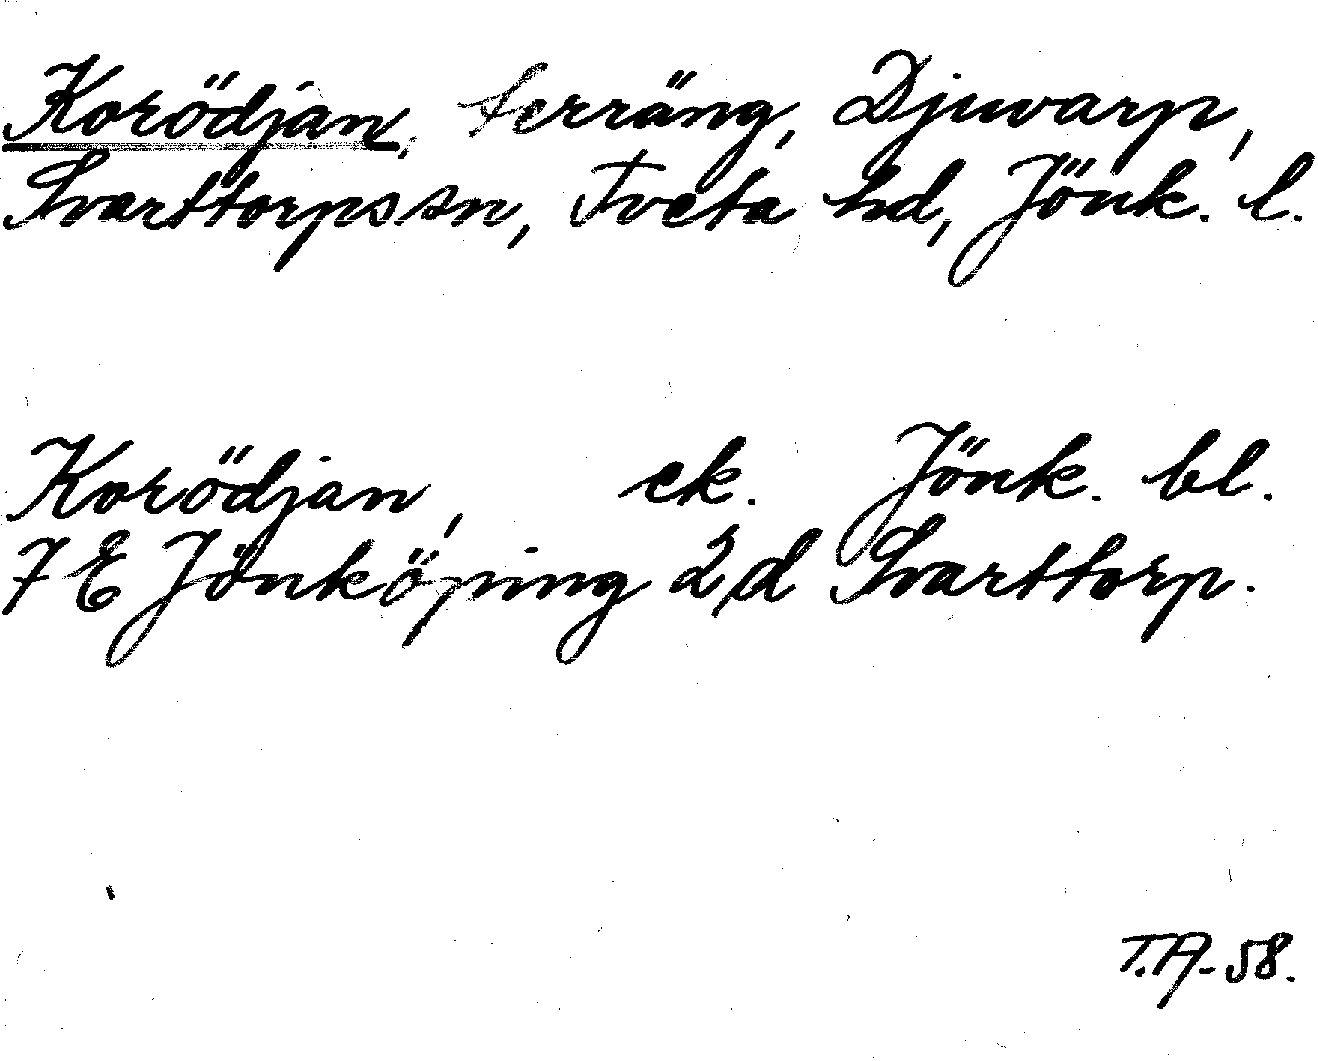 Korödjan, terräng, Djuvarp,
Svarttorps sn, Tveta hd, Jönk. l.
Korödjan, ek. Jönk. bl.
7 E Jönköping 2 d Svarttorp.
T.A-58.